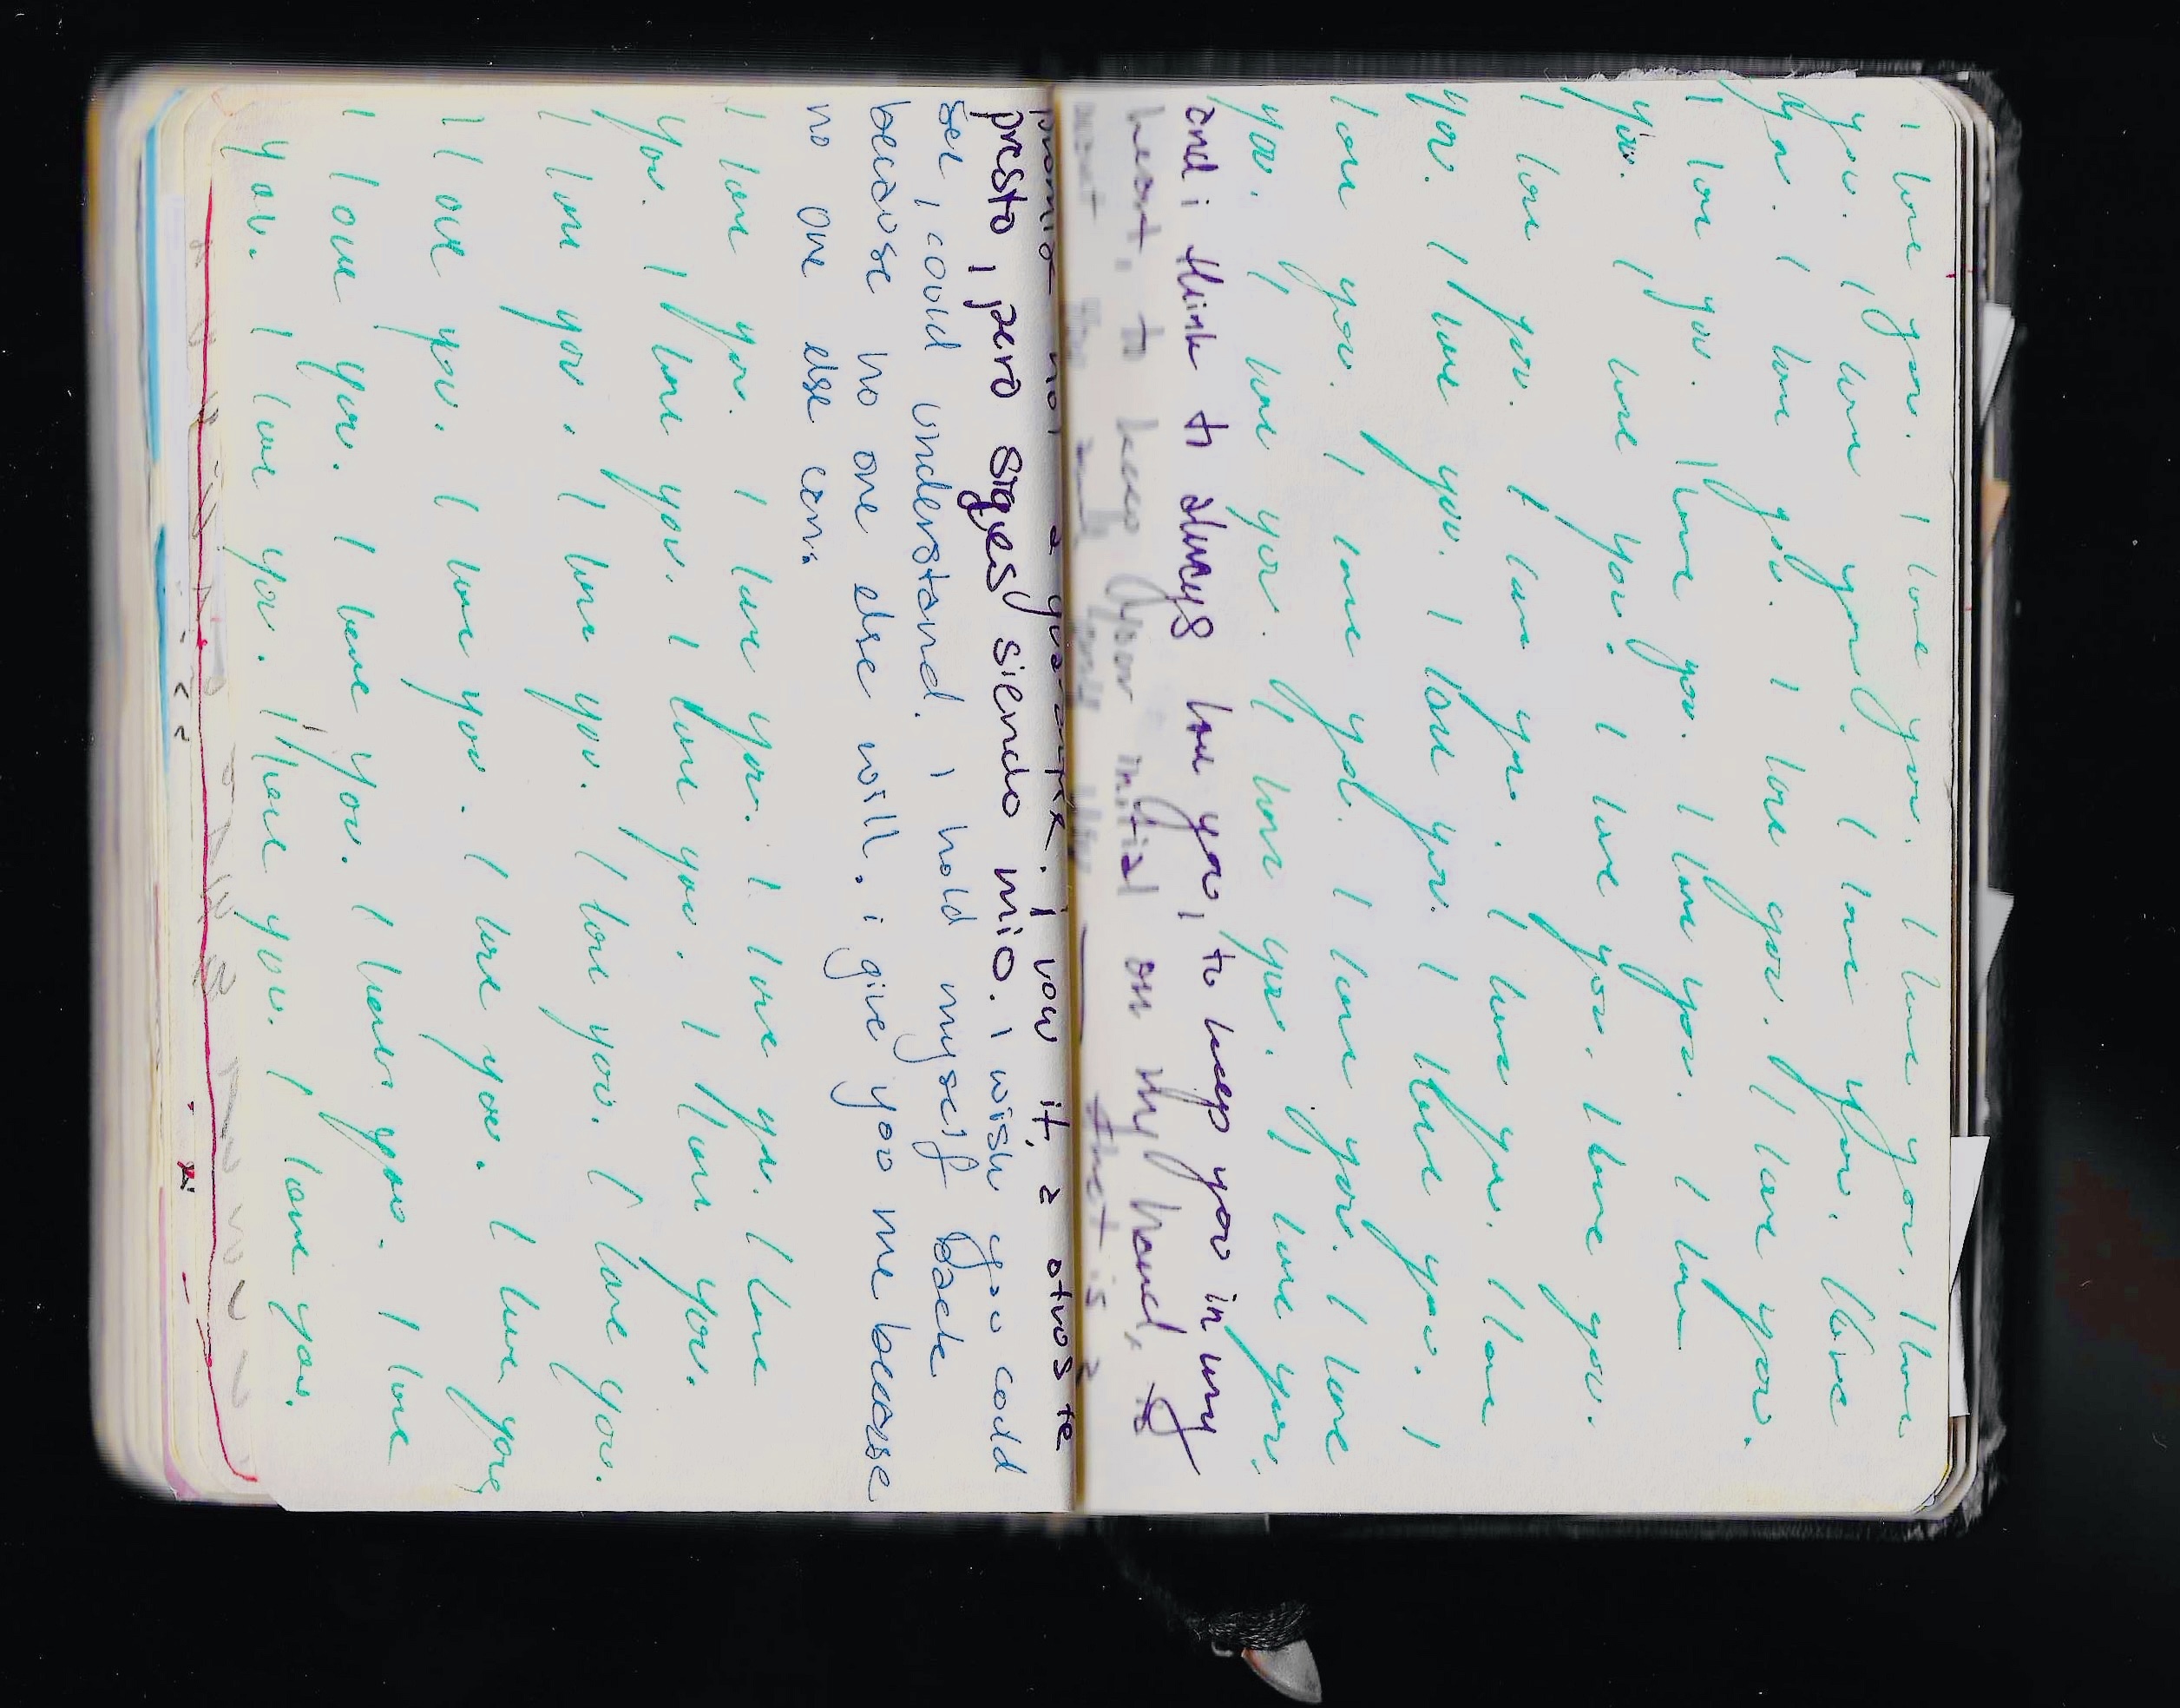 I love you. I love you. I love you. I love
you. I love you. I love you. I love
you. I love you. I love you. I love you.
I love you. I love you. I love you. I love
you. I love you. I love you. I love you.
I love you. I love you. I love you. I love
you. I love you. I love you. I love you. I
love you. I love you. I love you. I love
you. I love you. I love you. I love you.
and i think to always love you, to keep you in my
heart, to keep your initial on my hand, to
that is a
promise not a guarantee. i vow it, a otros te
presto, pero sigues siendo mio. i wish you could
see, i could understand. i hold myself back
because no one else will. i give you me because
no one else can.
I love you. I love you. I love you. I love
you. I love you. I love you. I love you.
I love you. I love you. I love you. I love you.
I love you. I love you. I love you. I love you
I love you. I love you. I love you. I love
you. I love you. I love you. I love you.